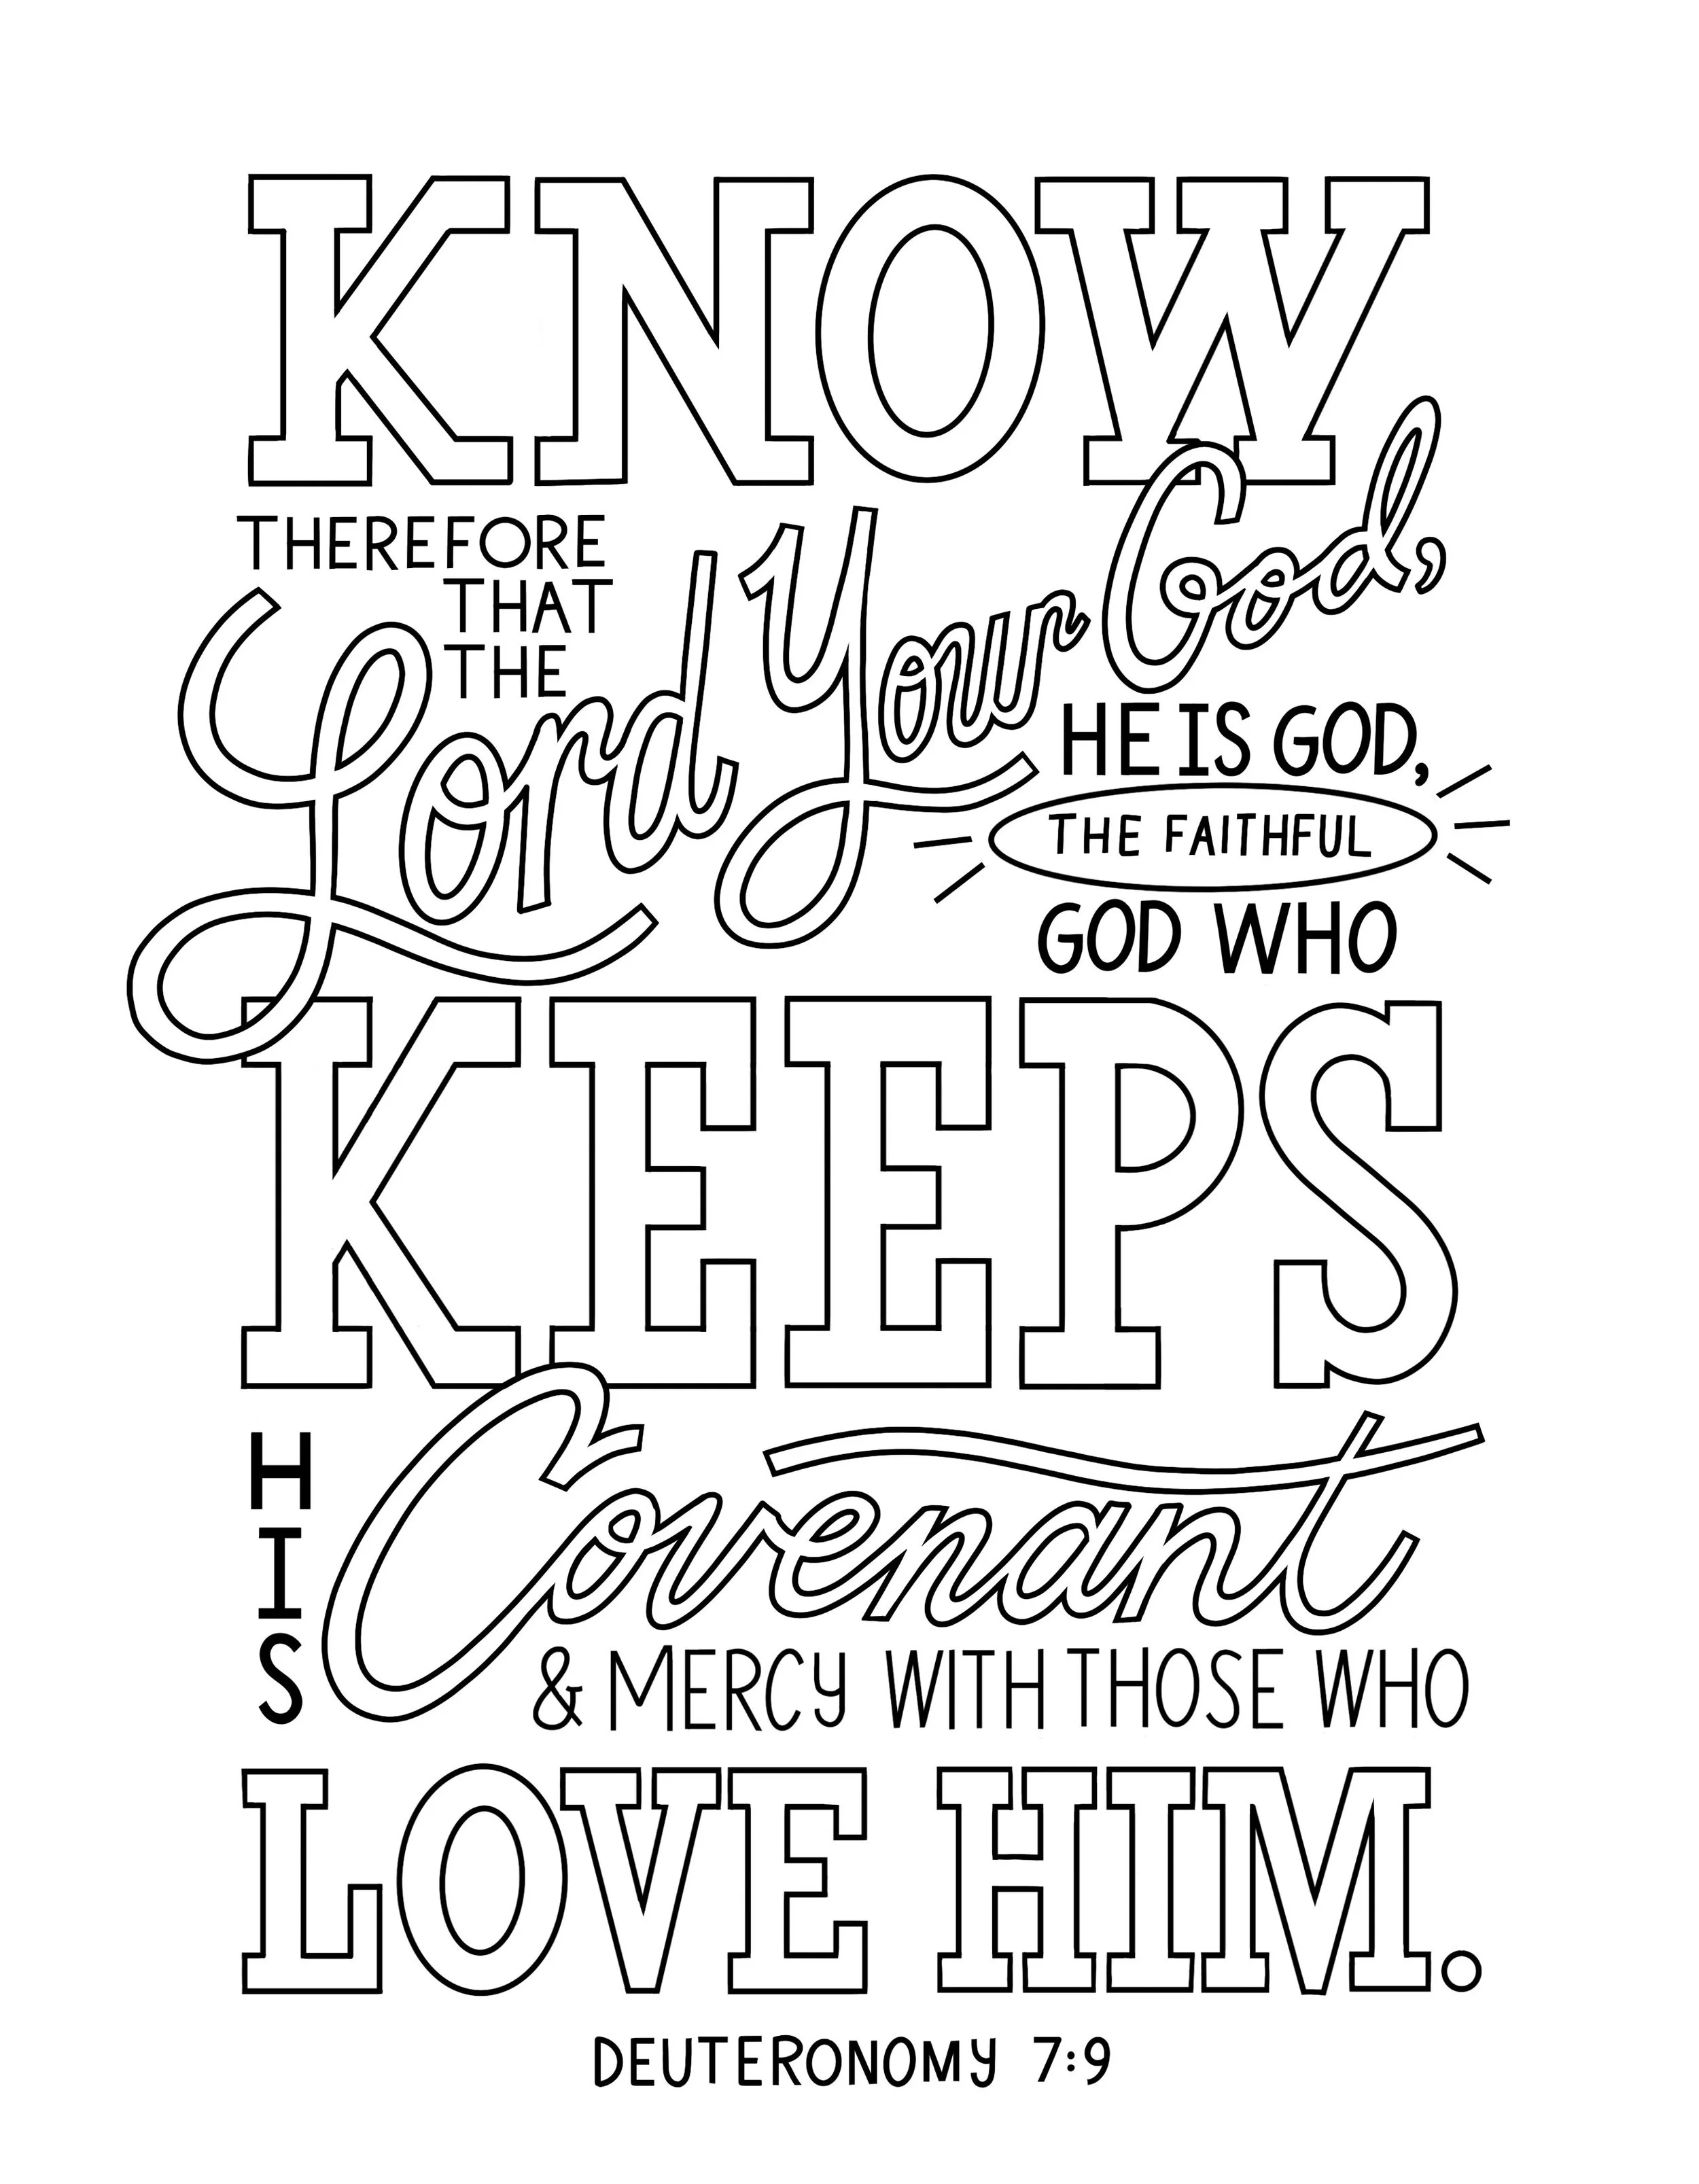 KNOW
THEREFORE
THAT
THE
Lord Your God,
HE IS GOD,
THE FAITHFUL
GOD WHO
KEEPS
HIS
Covenant
& MERCY WITH THOSE WHO
LOVE HIM.
DEUTERONOMY 7:9